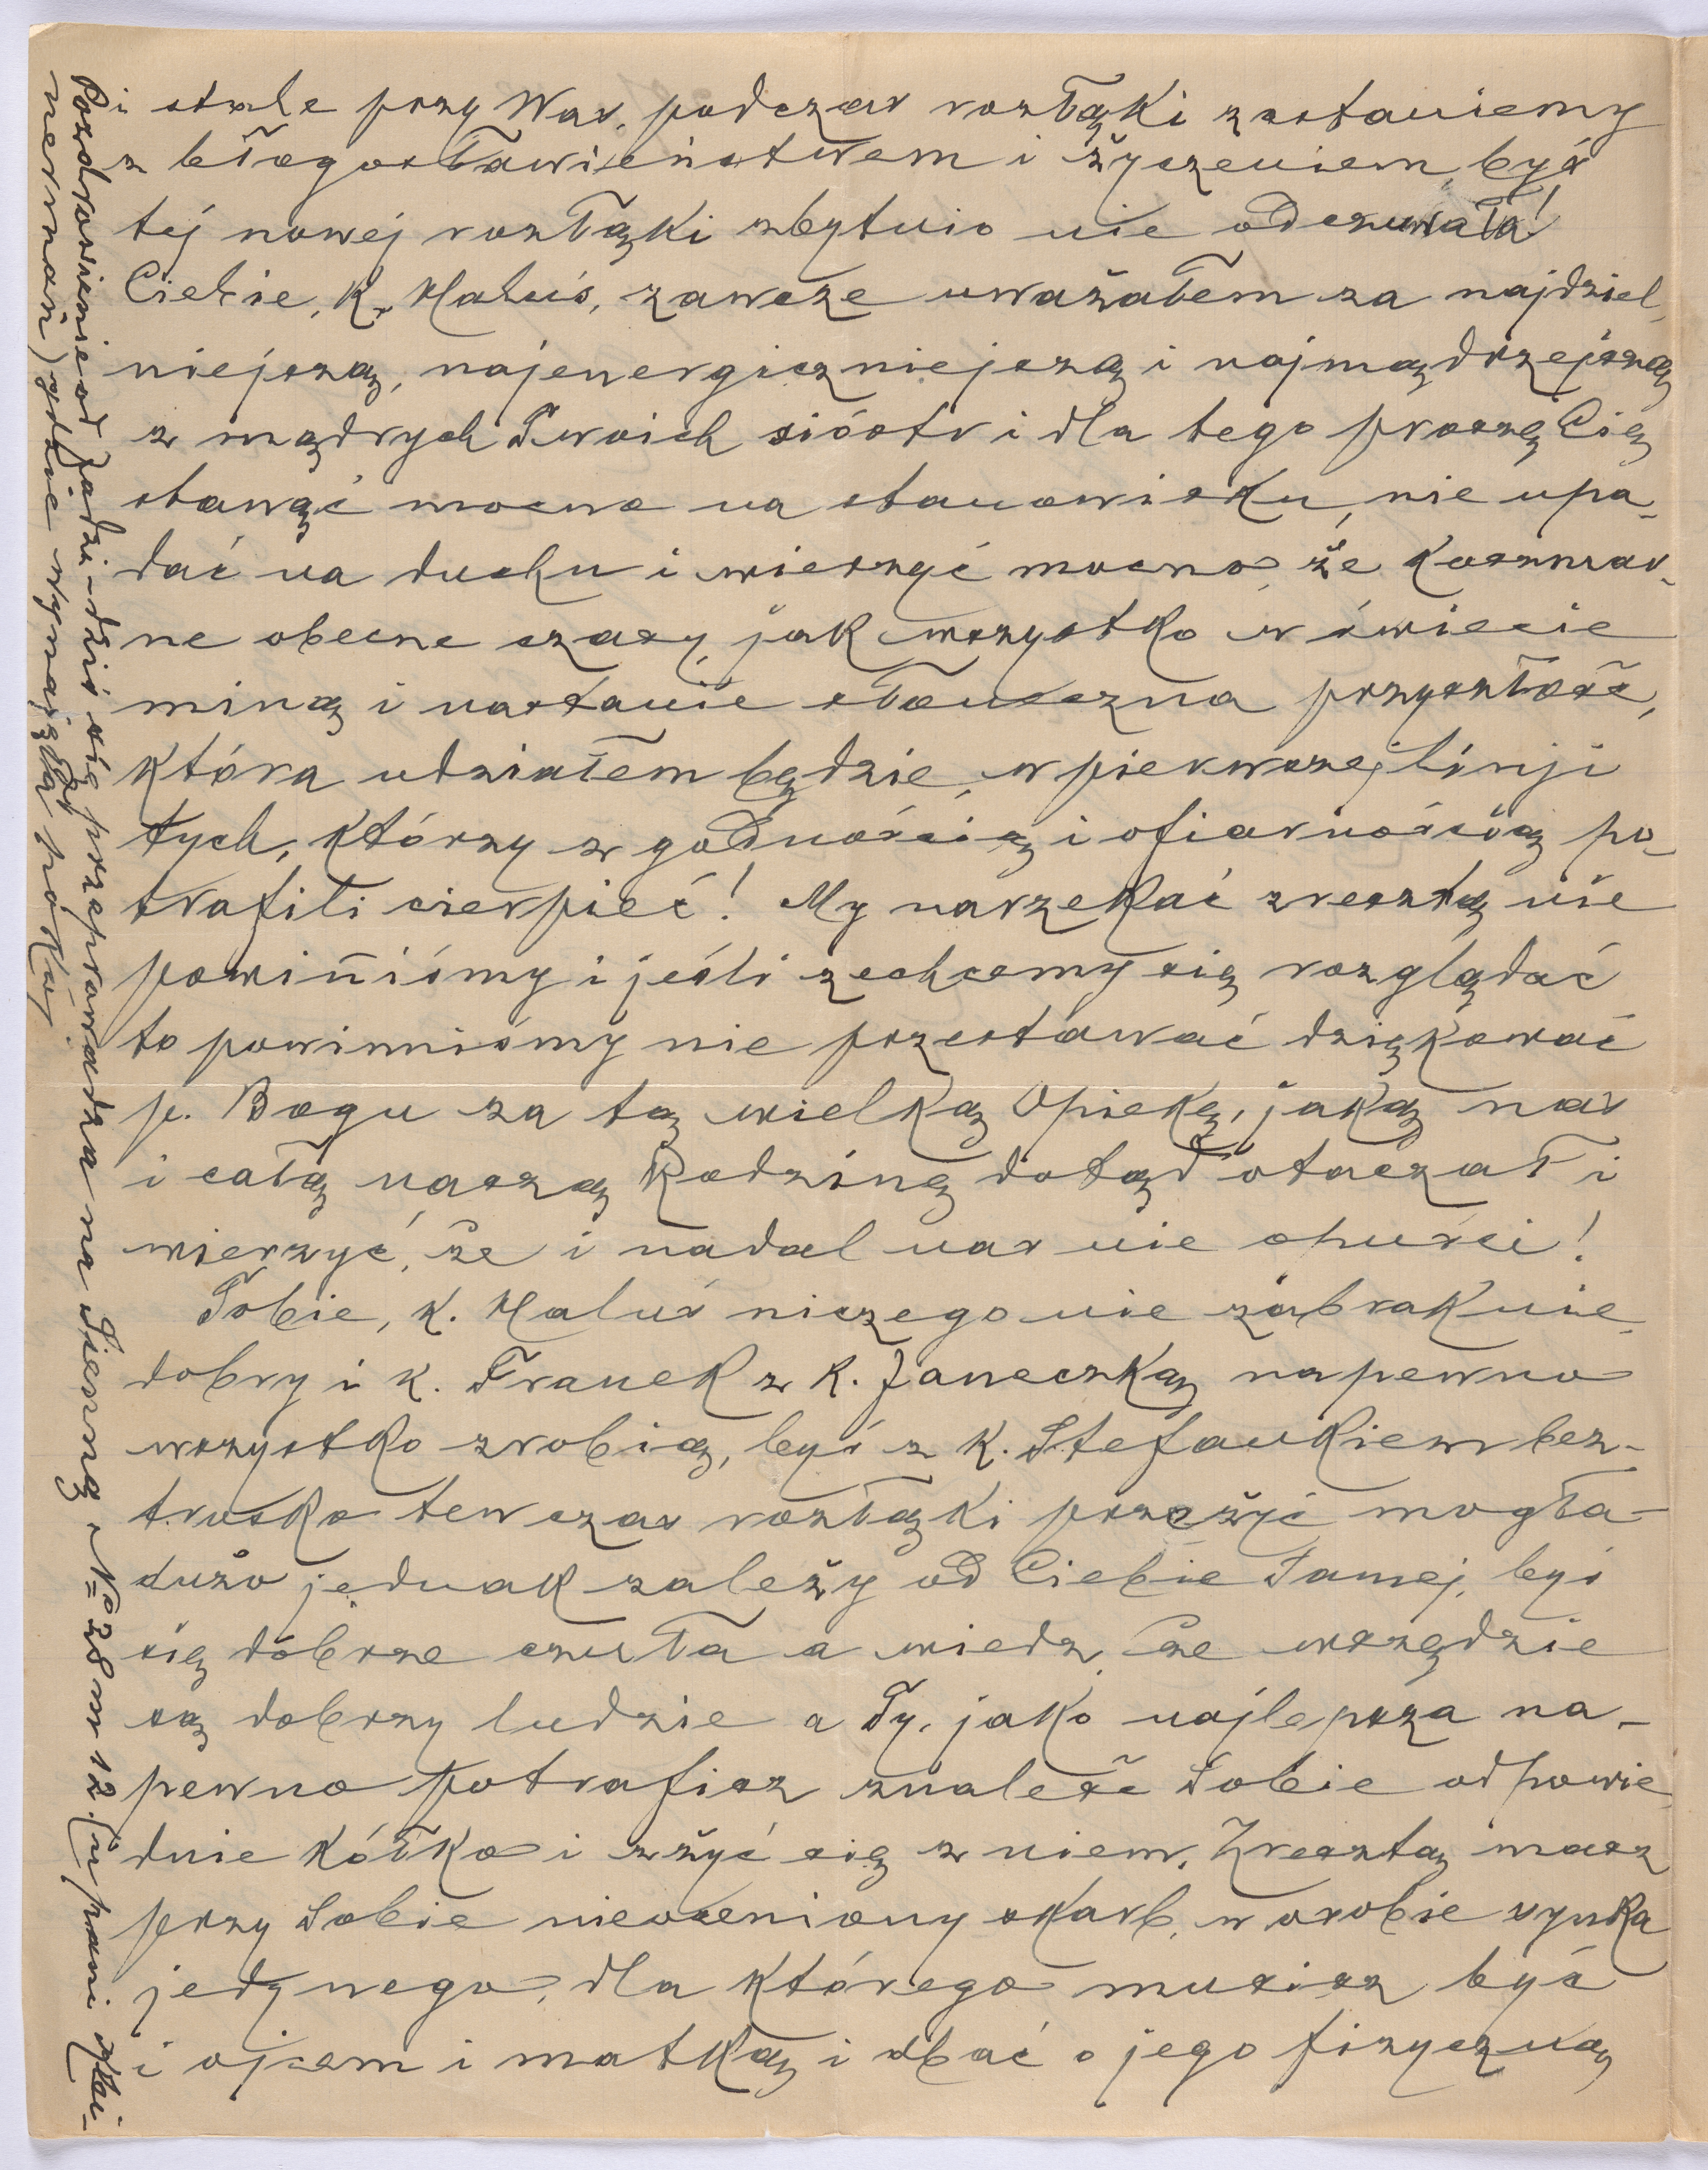 i stale przy Was, podczas rozłąki zostaniemy
z błogosławieństwem i życzeniem, byś
tej nowej rozłąki zbytnio nie odczuwała!
Ciebie, K. Haluś, zawsze uważałem za najdziel-
niejszą, najenergiczniejszą i najmądrzejszą
z mądrych Twoich sióstr i dla tego proszę Cię
stanąć mocno na stanowisku, nie upa-
dać na duchu i wierzyć mocno, że koszmar-
ne obecne czasy, jak wszystko w świecie
miną i nastanie słoneczna przyszłość,
która udziałem będzie, w pierwszej linji
tych, którzy z godnością i ofiarnością po-
trafili cierpieć! My narzekać zresztą nie
powiniśmy i jeśli zechcemy się rozglądać
to powinniśmy nie przestawać dziękować
p. Bogu za tą wielką Opiekę, jaką nas
i całą naszą Rodzinę dotąd otaczał i
wierzyć, że i nadal nas nie opuści!
Tobie, k. Haluś niczego nie zabraknie,
dobry i k. Franek z k. Janeczką napewno
wszystko zrobią, byś z k. Stefankiem bez-
trosko ten czas rozłąki przeżyć mogła -
dużo jednak zależy od Ciebie Samej, byś
się dobrze czuła a wiedz, że wszędzie
są dobrzy ludzie a Ty, jako najlepsza na-
pewno potrafisz znaleść Sobie odpowie-
dnie kółko i zżyć się z niem. Zresztą masz
przy Sobie nieoceniony skarb, w osobie synka
jedynego, dla którego musisz być
i ojcem i matką i dbać o jego fizyczną
Pozdrowienie od Jadzi - dziś się przeprowadza na Sienną, № 28 m 12 (u pani
nerman) gdzie wynajęła pokój.